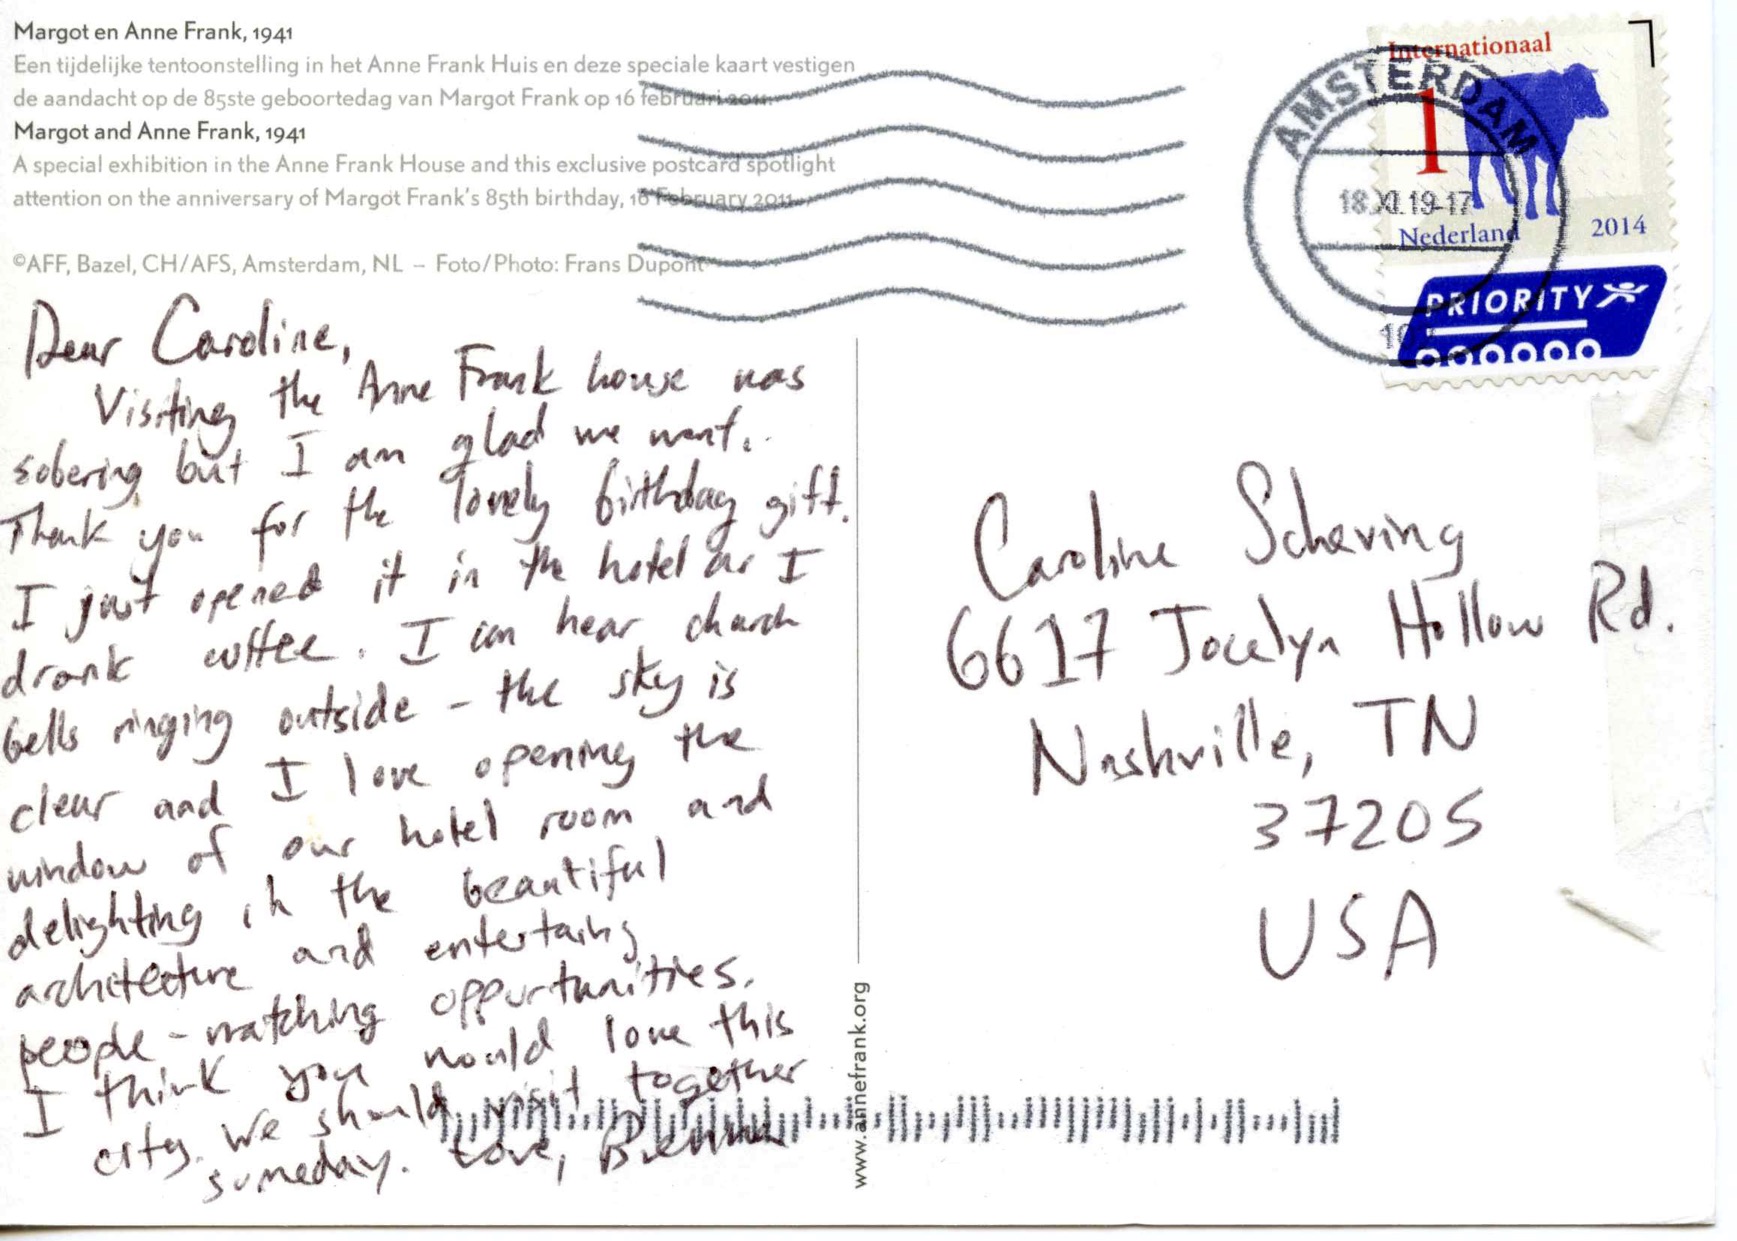 Margot en Anne Frank, 1941
Een tijdelijke tentoonstelling in het Anne Frank Huis en deze speciale kaart vestigen
de aandacht op de 85ste geboortedag van Margot Frank op 16 februari 2011.
Margot and Anne Frank, 1941
A special exhibition in the Anne Frank House and this exclusive postcard spotlight
attention on the anniversary of Margot Frank's 85th birthday, 16 February 2011.
©AFF, Bazel, CH/AFS, Amsterdam, NL – Foto/Photo: Frans Dupont
Internationaal
1
Nederland 2014
PRIORITY
AMSTERDAM
18.XI.19-17
Dear Caroline,
Visiting the Anne Frank house was
sobering but I am glad we went.
Thank you for the lovely birthday gift.
I just opened it in the hotel as I
drank coffee. I can hear church
bells ringing outside - the sky is
clear and I love opening the
window of our hotel room and
delighting in the beautiful
architecture and entertaing
people-watching oppurtunities.
I think you would love this
city. We should visit together
someday. Love,
Caroline Scheving
6617 Jocelyn Hollow Rd.
Nashville, TN
37205
USA
www.annefrank.org